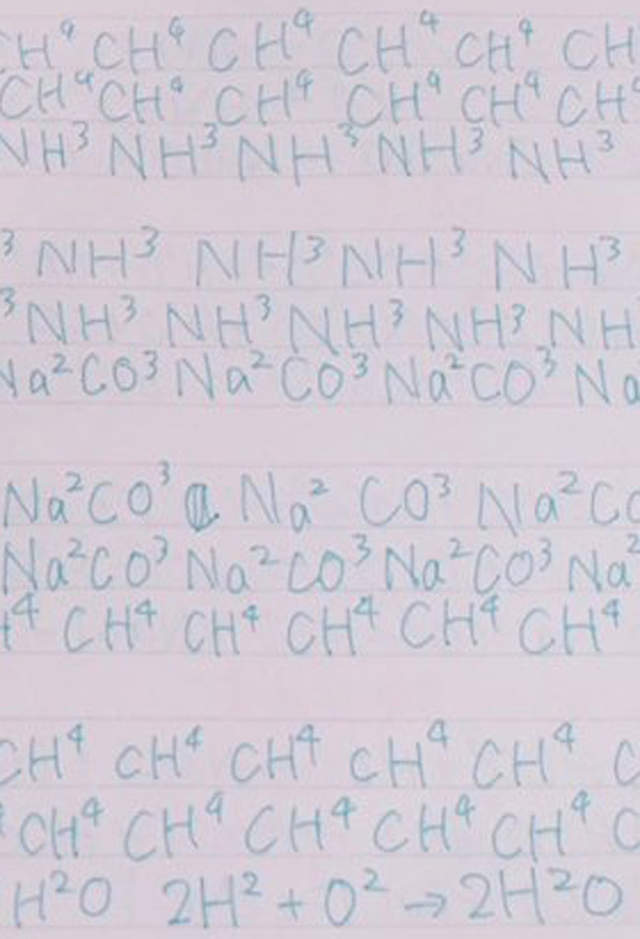 CH⁴ CH⁴ CH⁴ CH⁴ CH⁴ CH
CH⁴ CH⁴ CH⁴ CH⁴ CH⁴ CH⁴
NH³ NH³ NH³ NH³ NH³
³ NH³ NH³ NH³ NH³
³ NH³ NH³ NH³ NH³ NH
Na²CO³ Na²CO³ Na²CO³ Na
Na²CO³ Na²CO³ Na²CO
Na²CO³ Na²CO³ Na²CO³ Na²
H⁴ CH⁴ CH⁴ CH⁴ CH⁴ CH⁴
CH⁴ CH⁴ CH⁴ CH⁴ CH⁴ C
CH⁴ CH⁴ CH⁴ CH⁴ CH⁴ C
H²O 2H² + O² → 2H²O